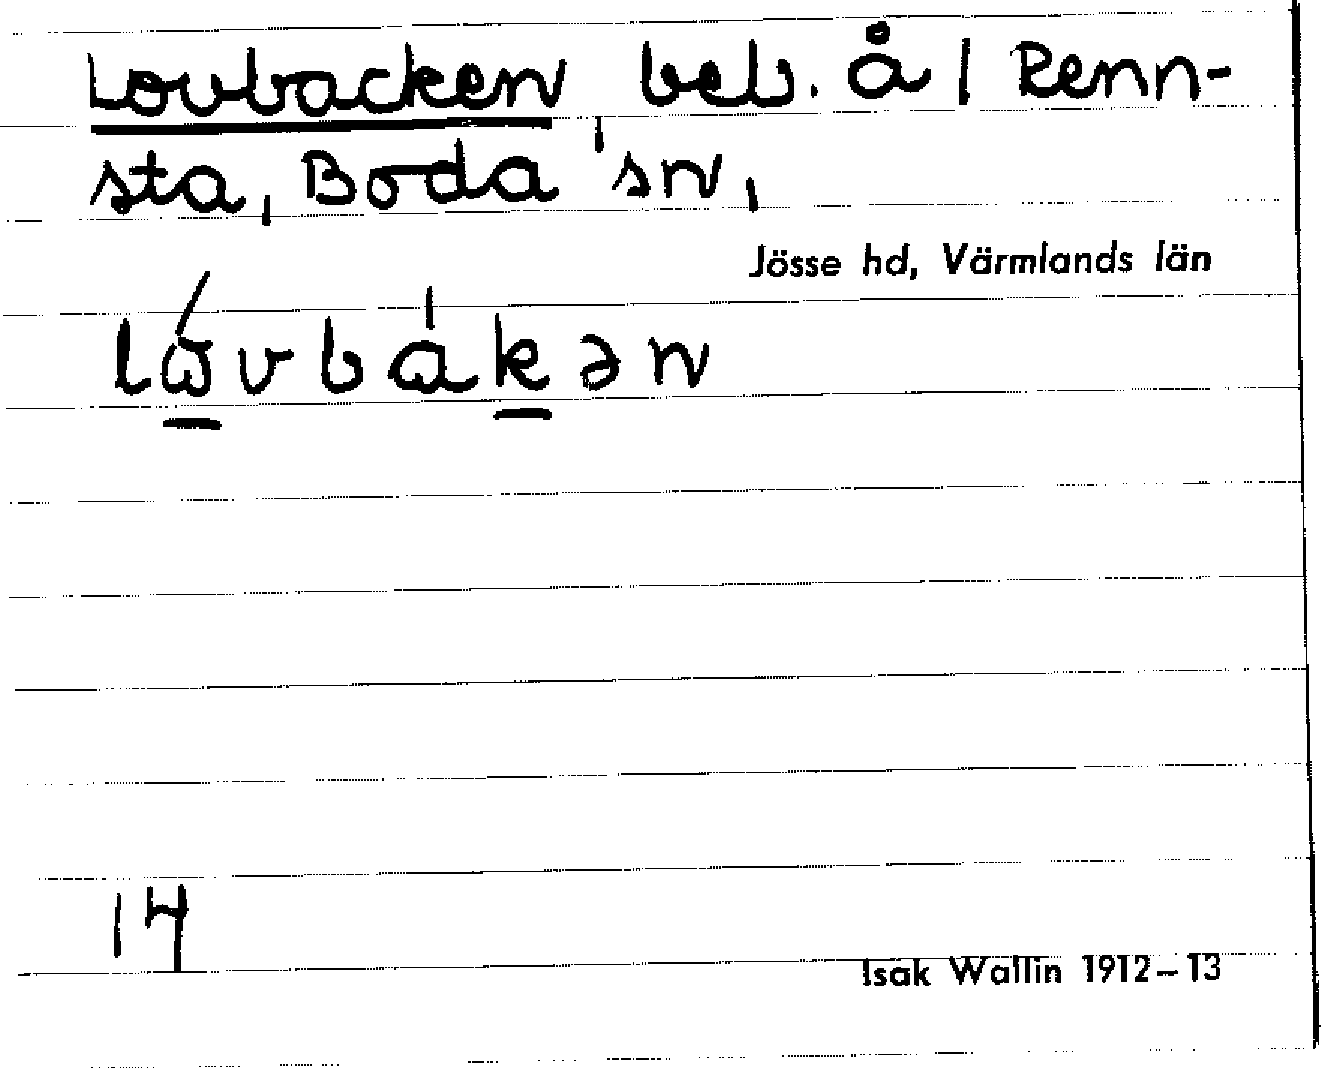 Lovbacken beb. å 1 Renn-
sta, Boda sn,
Jösse hd, Värmlands län
lǻvbàkən
14
Isak Wallin 1912–13